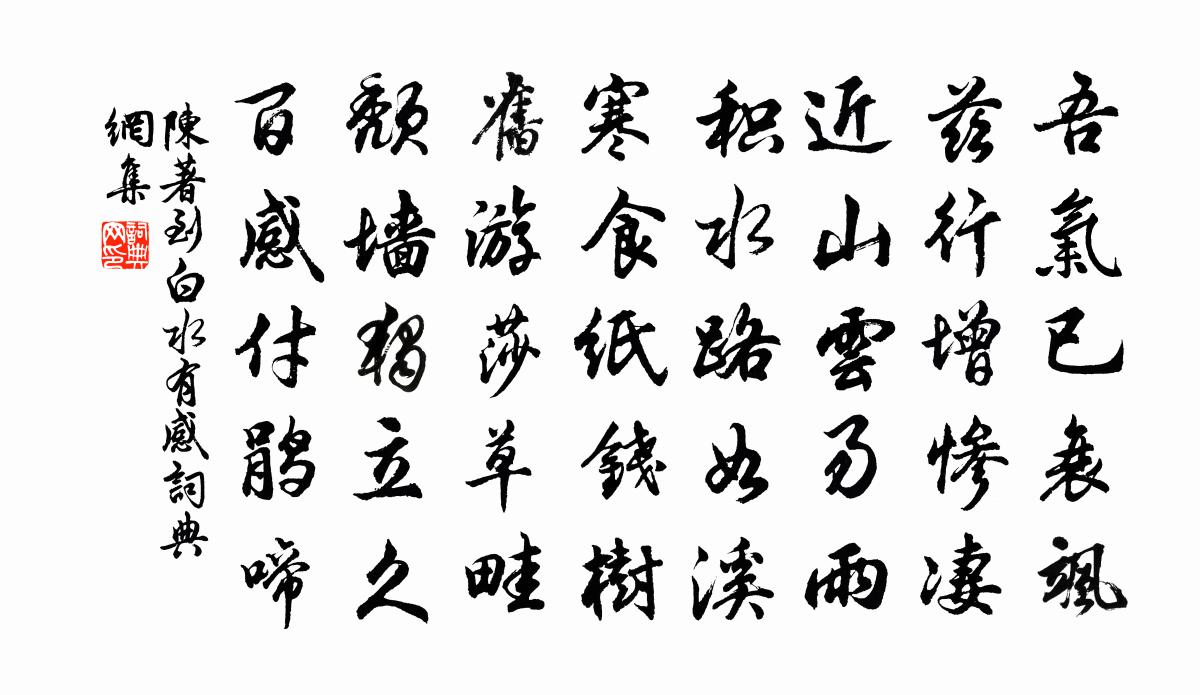 吾氣已衰颯
兹行增慘凄
近山雲易雨
积水路如溪
寒食紙錢樹
舊游莎草畦
頹墙獨立久
百感付鵑啼
陳著到白水有感詞典
網集
詞典
网印